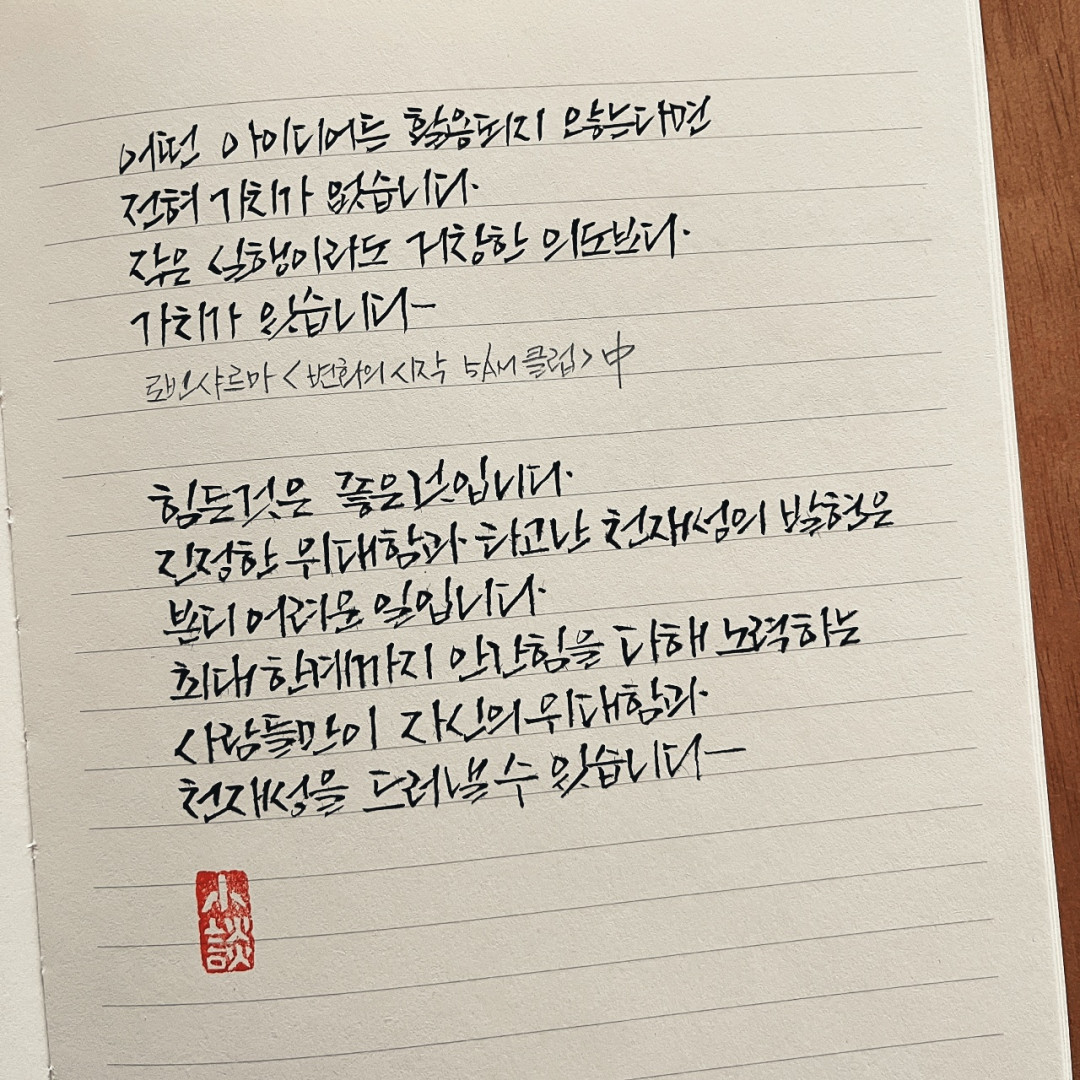 어떤 아이디어든 활용되지 않는다면
전혀 가치가 없습니다.
작은 실행이라도 거창한 의도보다.
가치가 있습니다-
로빈샤르마 <변화의 시작 5AM 클럽> 中
힘든것은 좋은것입니다.
진정한 위대함과 타고난 천재성의 발현은
본디 어려운 일입니다.
최대한계까지 안간힘을 다해 노력하는
사람들만이 자신의 위대함과.
천재성을 드러낼 수 있습니다-
小談